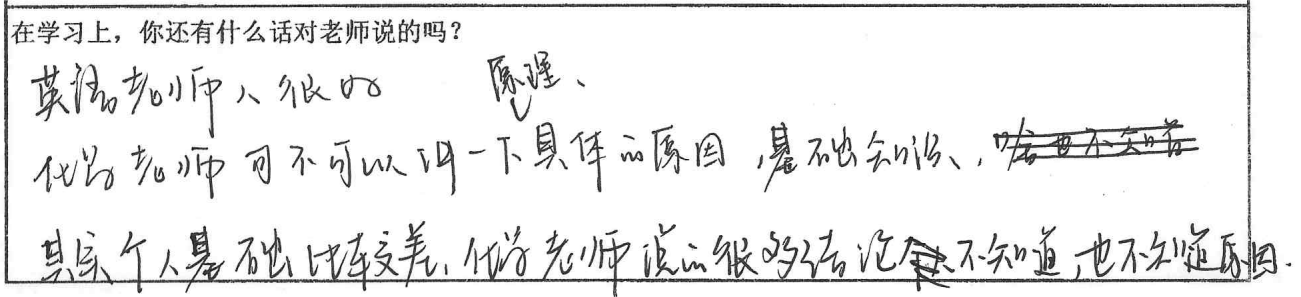 在学习上，你还有什么话对老师说的吗？
英语老师人很好
原理、
化学老师可不可以讲一下具体的原因，基础知识、，啥也不知道
其实个人基础比较差，化学老师说的很多结论不知道，也不知道原因.